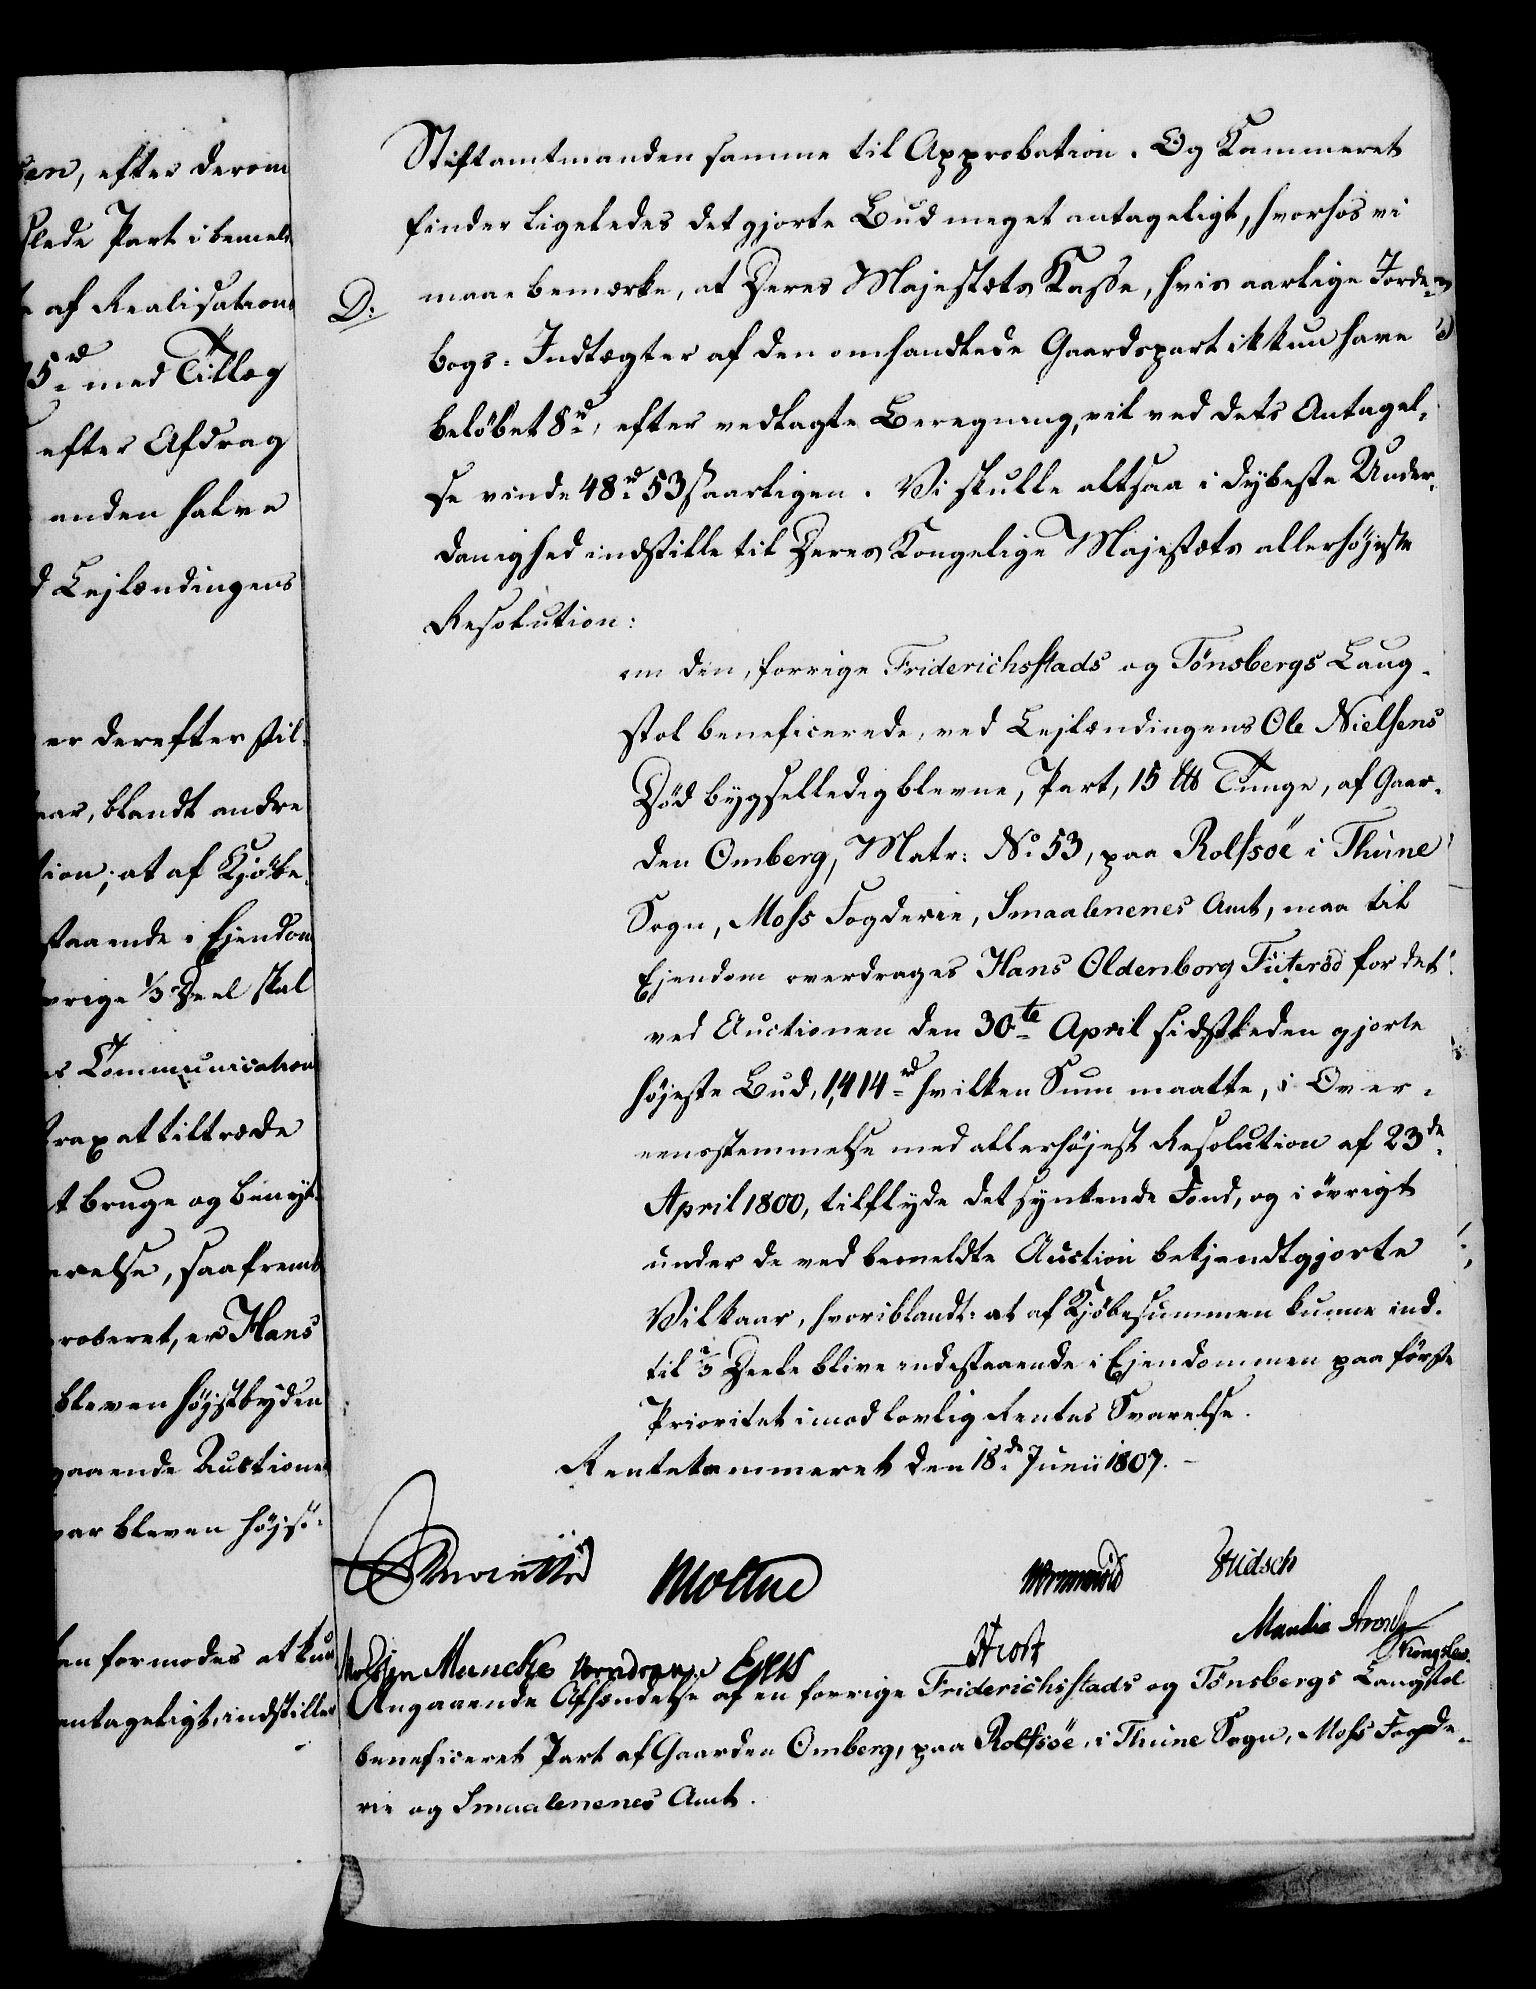 en, efter derom
slede Part i bemel
af Realisations
5 rd med Tillæg
efter Afdrag
anden halve
d Lejlændingens
er derefter stil-
aar, blandt andre
tion; at af Kjöbe
staaende i Ejendom
vrige 1/3 Deel skal
s Communication
strax at tiltræde
t bruge og benyt-
relse, saafremt
roberet, er Hans
bleven højstbyden
gaaende Auctioner
var bleven højst-
en formodes at kun
antageligt, indstiller
Stiftamtmanden samme til Approbation. Og Kammeret
finder ligeledes det gjorte Bud meget antageligt, hvorhos vi
D:
maae bemærke, at Deres Majestæts Kasse, hvis aarlige Jorde-
bogs-Indtægter af den omhandlede Gaardspart ikkun have
belöbet 8 rd, efter vedlagte Beregning, vil ved dets Antagel-
se vinde 48 rd 53 s aarligen. Vi skulle altsaa i dybeste Under-
danighed indstille til Deres Kongelige Majestæts allerhöjeste
Resolution:
om den, forrige Friderichsstads og Tönsbergs Laug-
stol beneficerede, ved Lejlændingens Ole Nielsens
Död bygselledigblevne, Part, 15 lb Tunge, af Gaar-
den Omberg, Matr: No 53, paa Rolfsöe i Thune
Sogn, Moss Fogderie, Smaalenenes Amt, maa til
Ejendom overdrages Hans Oldenborg Tüteröd for det
ved Auctionen den 30te April sidstleden gjorte
höjeste Bud, 1,414 rd hvilken Sum maatte, i Over-
eensstemmelse med allerhöjest Resolution af 23de
April 1800, tilflyde det synkende Fond, og i övrigt
under de ved bemeldte Auction bekjendtgjorte
Vilkaar, hvoriblandt: at af Kjöbesummen kunne ind-
til 2/3 Deele blive indestaaende i Ejendommen paa förste
Prioritet imod lovlig Rentes Svarelse.
Rentekammeret den 18de Junii 1807.
Moltke
Wormskiold
Fridsch
Müncke
Hrost
Angaaende Afhændelse af en forrige Friderichsstads og Tönsbergs Laugstol
beneficeret Part af Gaarden Omberg, paa Rolfsöe, i Thune Sogn, Moss Fogde-
rie og Smaalenenes Amt.